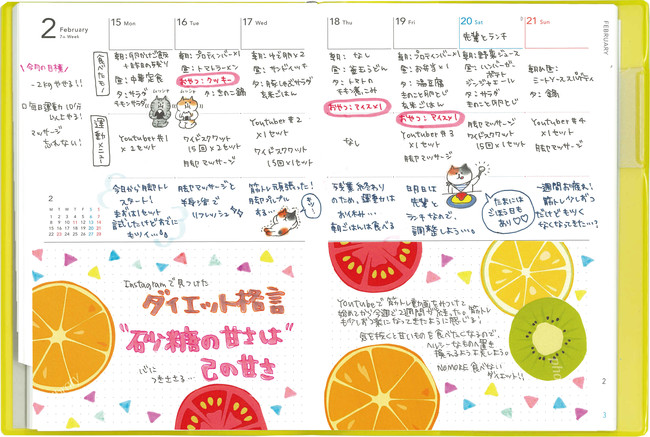 2 February
7s Week
15 Mon
16 Tue
17 Wed
18 Thu
19 Fri
20 Sat
21 Sun
FEBRUARY
先輩とランチ
今月の目標
−2kgやせる!!
毎日運動10分
以上やる!
マッサージ
忘れない!
食べたモノ
昼:中華定食
夕:サラダ
チキンサラダ
朝:プロテインバー×1
昼:トマトラーメン
おやつ:クッキー
夕:きのこ鍋
昼:サンドイッチ
玄米ごはん
朝:なし
昼:釜玉うどん
夕:トマトの
チキン煮こみ
おやつ:アイス×1
朝:プロテインバー×1
昼:お弁当×1
夕:湯豆腐
玄米ごはん
おやつ:アイス×1
朝:野菜ジュース
昼:ハンバーガー
ポテト
ジンジャエール
夕:サラダ
ミートソーススパゲティ
夕:鍋
運動メニュー
Youtube#1
×2セット
ワイドスクワット
15回×2セット
脚マッサージ
Youtube#2
×1セット
ワイドスクワット
15回×1セット
なし
Youtube#3
×1セット
脚マッサージ
脚マッサージ
ワイドスクワット
15回×1セット
Youtube#4
×1セット
脚マッサージ
今日から脚トレ
スタート!
脚マッサージと
半身浴で
リフレッシュ
筋トレ頑張った!
脚プルプル
する…
残業終わり
のため、運動は
お休み…
朝ごはんは食べる
明日は
先輩と
ランチなので、
調整しよう…。
たまには
ごほう日も
あり♡♡
一週間お疲れ!
筋トレ少しずつ
だけどもりく
なくなってきた…?
2
M T W T F S S
1 2 3 4 5 6 7
8 9 10 11 12 13 14
15 16 17 18 19 20 21
22 23 24 25 26 27 28
Instagramで見つけた
ダイエット格言
"石少糖の甘さは"
己の甘さ
心に
つきささる…
Youtubeで筋トレ動画をみつけて
始めてから今週で2週間が経った。筋トレ
も少しお楽になってきたように感じる!
食を抜くと甘いものを食べたくなるので、
ヘルシーなもので量を
換えるよう工夫しよう。
NOMORE食べない
ダイエット!!
2
3